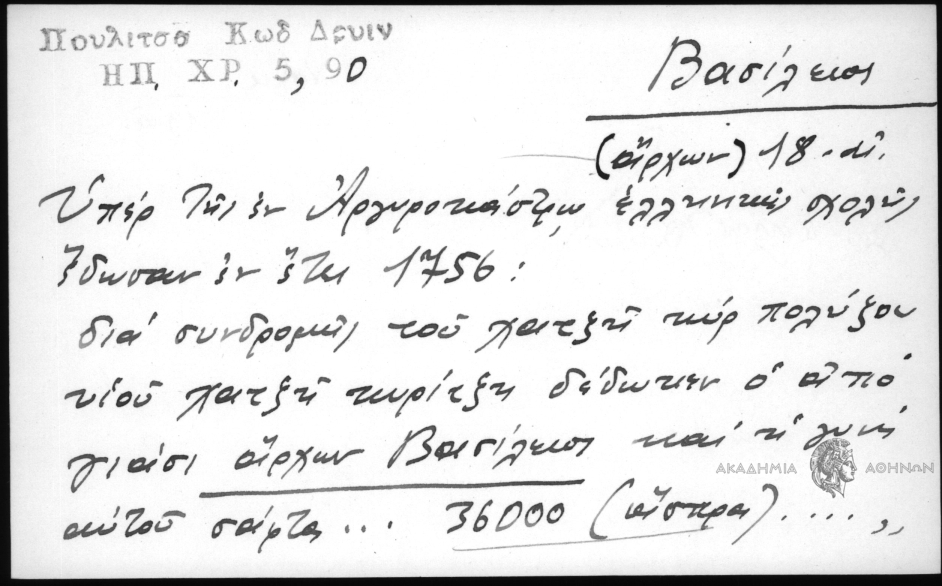 Πουλιτσα Κωδ Δρυιν
ΗΠ. ΧΡ. 5, 90
Βασίλειος
(ἄρχων) 18. αἰ.
Ὑπέρ τῆς ἐν Ἀργυροκάστρῳ ἑλληνικῆς σχολῆς
ἔδωσαν ἐν ἔτει 1756:
διά συνδρομῆς τοῦ χατζῆ κύρ πολύζου
υἱοῦ χατζῆ κυρίτζη δέδωκεν ὁ ἀπό
γιάσι ἄρχων Βασίλειος καί ἡ γυνή
αὐτοῦ σάφτα... 36000 (ἄσπρα)....,,
ΑΚΑΔΗΜΙΑ ΑΘΗΝΩΝ